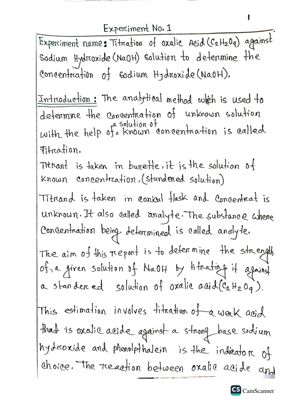 1
Experiment No. 1
Experiment name: Titration of oxalic Acid (C2H2O4) against
Sodium Hydroxide (NaOH) solution to determine the
concentration of sodium Hydroxide (NaOH).
Introduction: The analytical method which is used to
determine the concentration of unknown solution
a solution of
with the help of known concentration is called
titration.
Titrant is taken in burette, it is the solution of
known concentration. (standered solution)
Titrand is taken in conical flask and concentrat is
unknown. It also called analyte. The substance whose
concentration being determined is called analyte.
The aim of this report is to determine the strength
of a given solution of NaOH by titrating it against
a standered solution of oxalic acid (C2H2O4).
This estimation involves titration of a weak acid
that is oxalic acide against a strong base sodium
hydroxide and phenolpthalein is the indicator of
choice. The reaction between oxalic acide and
CS CamScanner